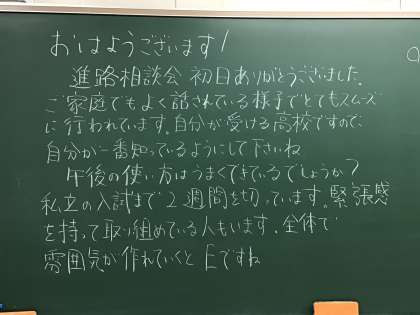 おはようございます!
進路相談会初日ありがとうございました。
ご家庭でもよく話されている様子でとてもスムーズ
に行われています。自分が受ける高校ですので、
自分が一番知っているようにして下さいね
午後の使い方はうまくできているでしょうか?
私立の入試まで2週間を切っています。緊張感
を持って取り組めている人もいます。全体で
雰囲気が作れていくと Eですね